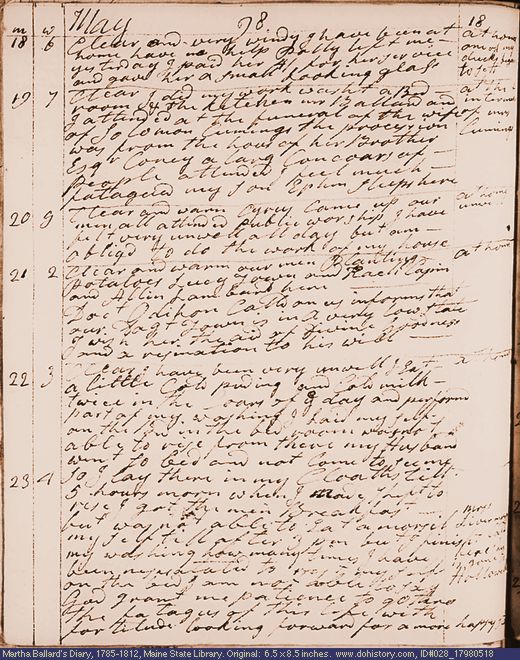 May 98 18
m w
18 6 Clear and very windy I have been at at home
home have no help Polly left me one of my
yesterday I paid her 4/ for her service ducks began
and gave her a small looking glass to sett
19 7 Clear I did my work washt a Bed at the
room & the kitchen mr Ballard and interment
I attended at the funeral of the wife of mrs
of Solomon Cumings the procession Cuming
was from the house of her Brother
Esqr Coney a larg Concoars of
People attended I feel much
fatagued my son Ephm sleeps here
20 g Clear and warm Cyrus came up our at home
men all attend Public worship I have unwell
felt very unwell all day but am
abligd to do the work of my house
21 2 Clear and warm our men Planting at home
Potatoes Lucy Town and Rachl
and Allin Lambard here
Doct Dickson Calld on us informs that
our Dagt Town is in a very low state
I wish her the aid of Divine goodness
and a resignation to his will
22 3 Clear I have been very unwell I Eat at home
a little Cold puding and Cold milk
twice in the coars of ye day and perform
part of my washing I laid my self
on the Bed in the bed room was not
able to rise from there my Husband
went to bed and not Come to see me
23 4 so I lay there in my Cloaths till
5 hours morn when I made shift to
rise I got the men Breakfast
but was not able to Eat a morsel mrs
my self till after 2 pm but to finish
my washing how many times I have
been necessitated to rest my self
on the bed I am not able to say
God grant me patience to go thro
the fatagues of this life with
fortitude looking forward for a more happy
Martha Ballard's Diary, 1785-1812, Maine State Library. Original: 6.5 x 8.5 inches. www.dohistory.com, ID#028_17980518